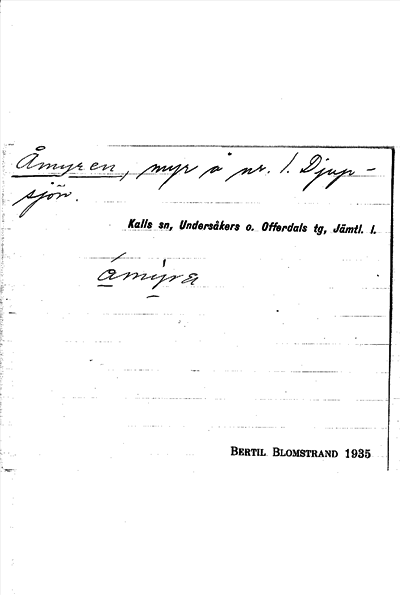 Åmyren, myr å nr. 1. Djup-
sjön.
Kalls sn, Undersåkers o. Offerdals tg, Jämtl. l.
åmy̆ra
BERTIL BLOMSTRAND 1935